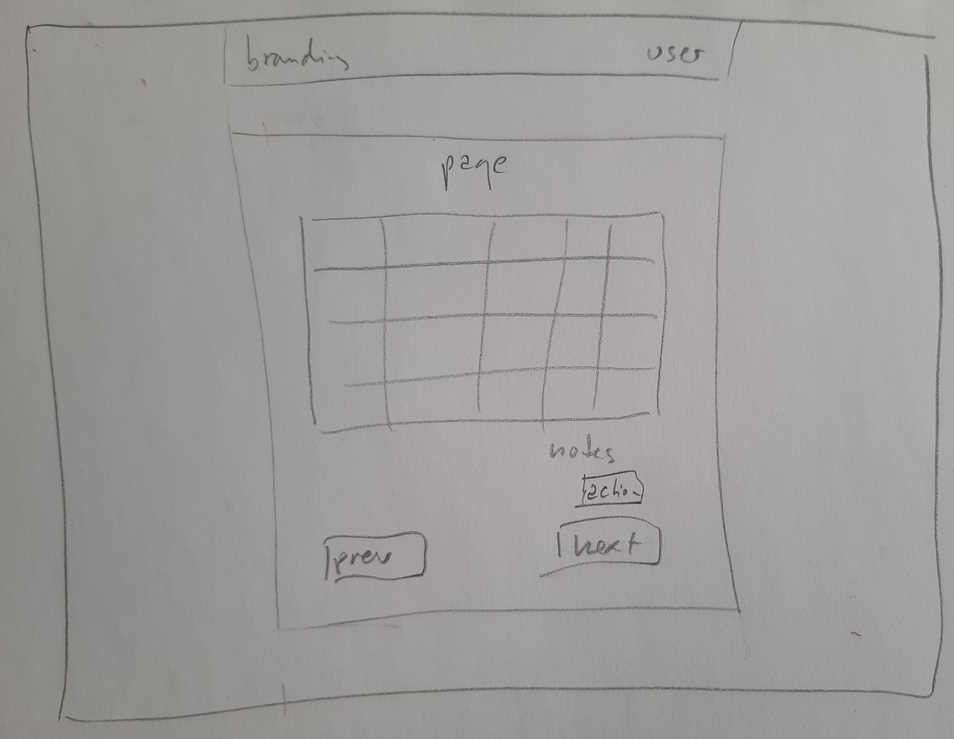 branding user
page
notes
action
prev next